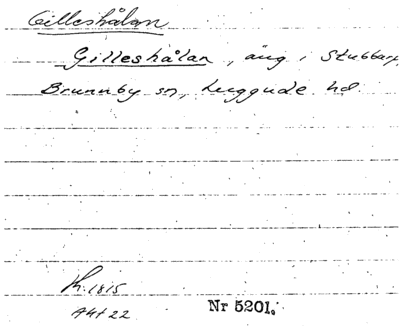 Gilleshålan
Gilleshålan, äng i Stubbarp,
Brunnby sn, Luggude hd.
1815
Akt 22
Nr 5201.